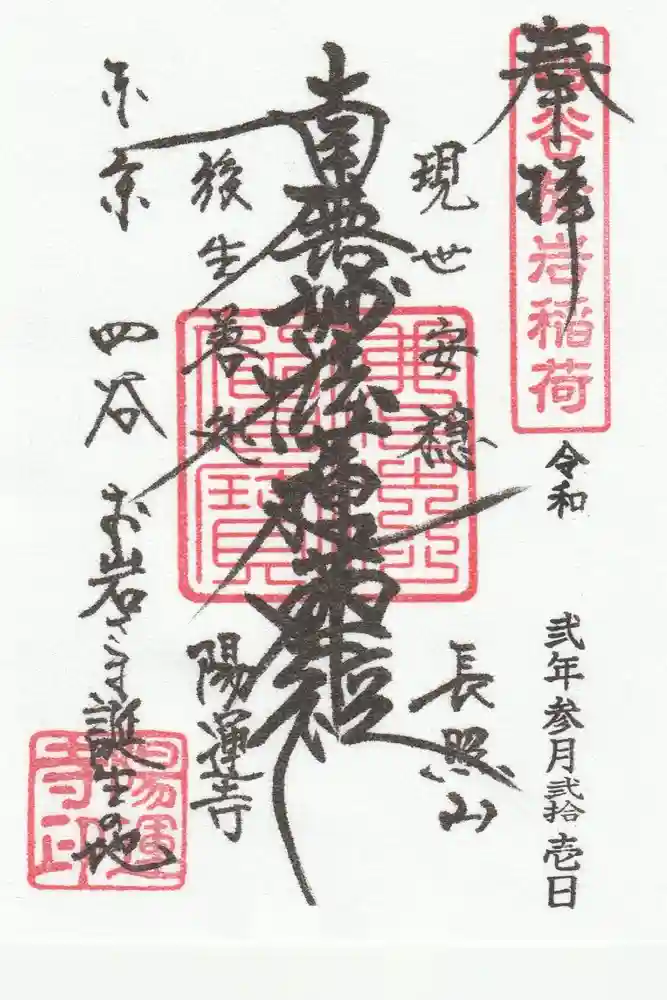 奉拝
四谷於岩稲荷
令和 弐年参月弐拾壱日
現世安穏 長照山
南無妙法蓮華経
後生善処 陽運寺
東京 四谷 お岩さま誕生の地
陽運寺印